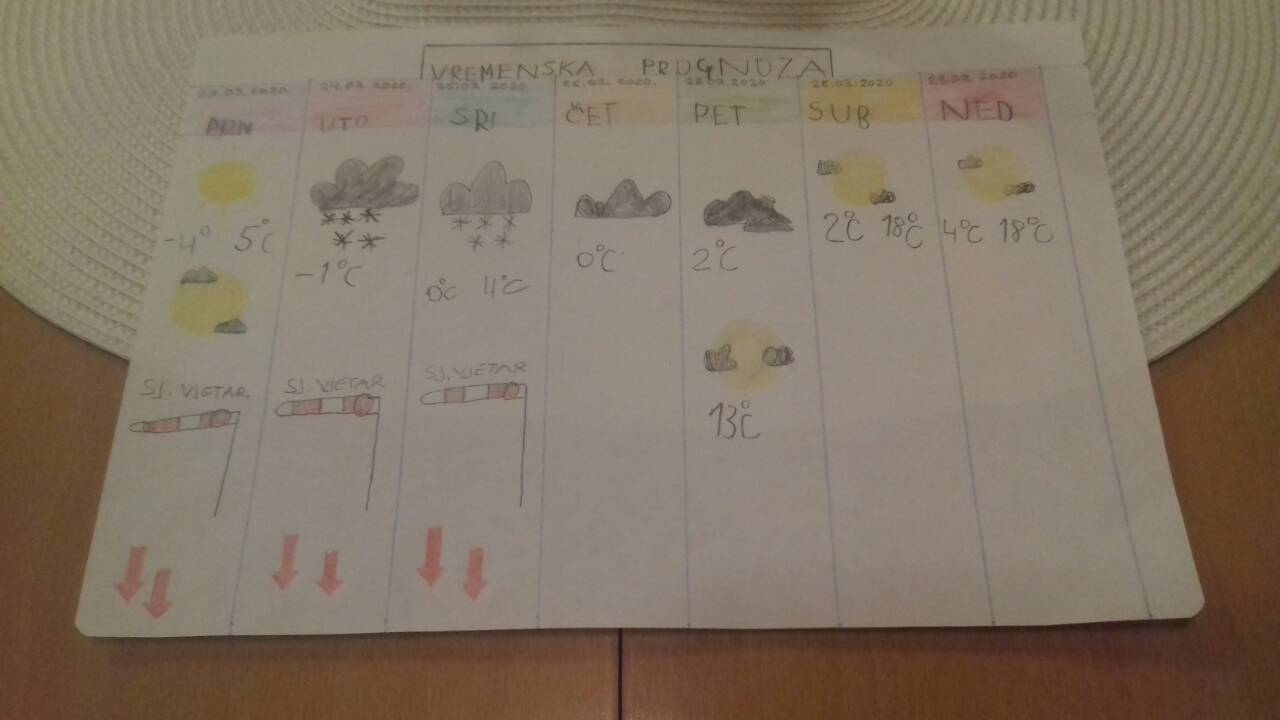 VREMENSKA PROGNOZA
23.03.2020. 24.03.2020. 25.03.2020. 26.03.2020. 28.03.2020 29.03.2020
PON UTO SRI ČET PET SUB NED
-4° 5°C -1°C 0°C 4°C 0°C 2°C 2°C 18°C 4°C 18°C
SJ. VJETAR SJ. VJETAR SJ. VJETAR
13°C